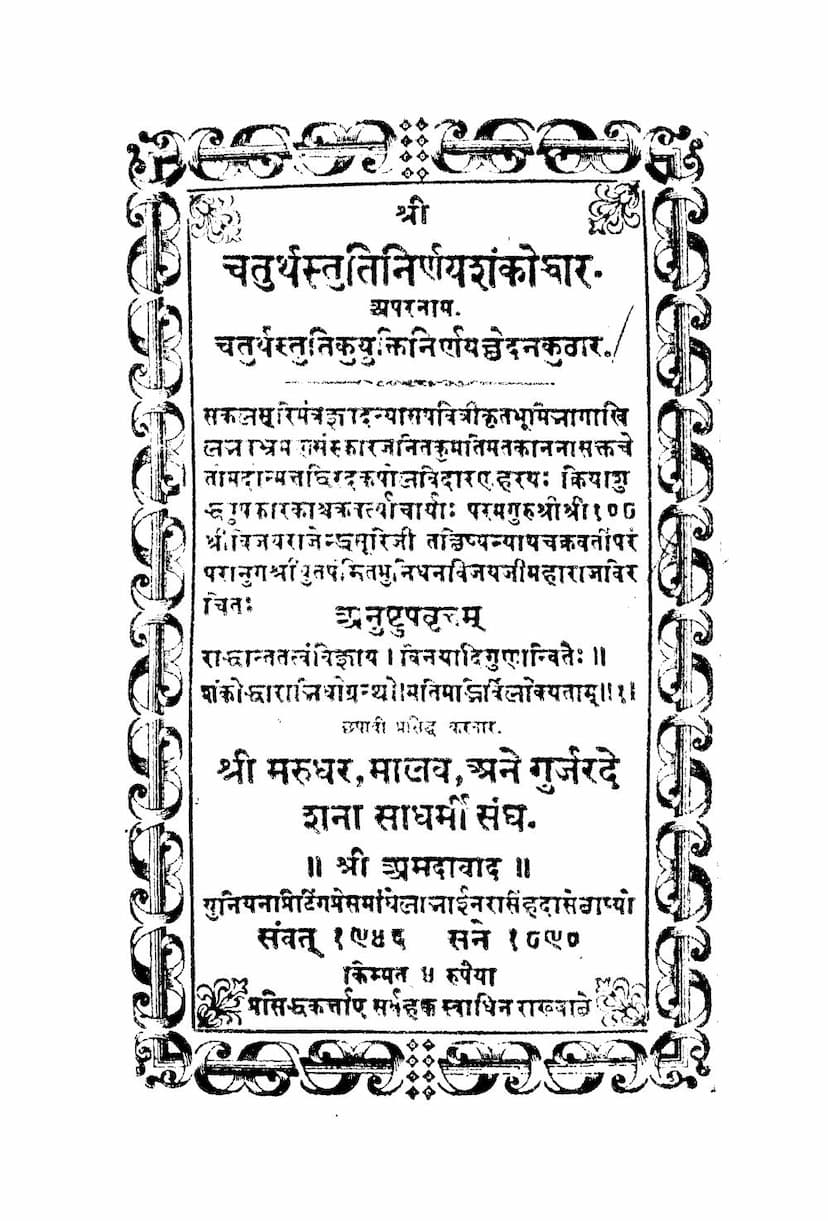 श्री
चतुर्थस्तुतिनिर्णयशंकोद्धार.
अपरनाम.
चतुर्थस्तुतिकुयुक्तिनिर्णयछेदनकुठार.
सकलसूरिमंत्र न्यासपवित्रीकृतभूमिभागाखि
जनितकुमतिमतकाननासक्तचे
तामदान्मत्तद्विरदकपोलविदारणहरयः क्रियाशु
परमगुरुश्रीश्री१०८
श्रीविजयराजेन्द्रसूरिजी तच्छिष्यन्यायचक्रवर्तीपरं
परानुगश्रीयुतपंडितमुनिधनविजयजीमहाराजविर
चितः
अनुष्टुपवृत्तम्
राद्धान्ततत्वंविज्ञाय । विनयादिगुणान्वितैः ॥
शंकोद्धाराभिधोग्रन्थो।मतिमद्भिर्विलोक्यताम्॥१॥
छपावी प्रसिद्ध करनार.
श्री मरुधर, मालव, अने गुर्जरदे
शना साधर्मी संघ.
॥ श्री अमदावाद ॥
युनियनप्रिंटिंगप्रेसमांघेलाभाईनरसिंहदासेछाप्यो
संवत् १९४६ सने १८९०
किम्मत ४ रुपैया
प्रसिद्धकर्त्ताए सर्वहक स्वाधिन राख्याछे